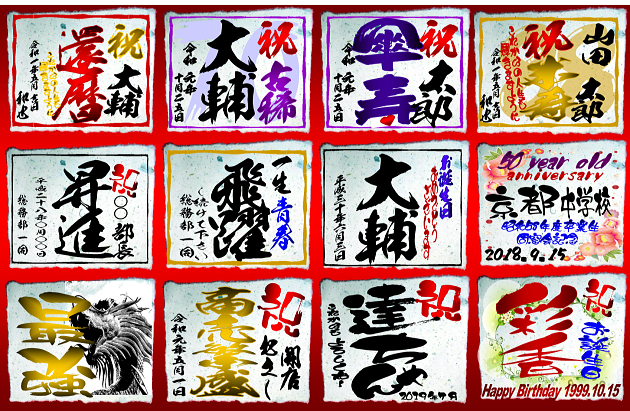 祝
還暦
大輔
令和一年五月吉日
祝
古稀
大輔
令和元年
十月二十五日
祝
傘寿
太郎
祝
山田
太郎
祝
昇進
〇〇部長
平成二十八年〇月〇〇日
総務部一同
一生青春
飛躍
(続けて下さい)
総務部一同
お誕生日
おめでとうございます
大輔
平成三十年六月三日
50 year old
anniversary
京都中学校
昭和58年度卒業生
同窓会記念
2018.9.15
最強
祝
開店
商売繁盛
令和元年五月一日
祝
達ちゃん
祝
お誕生日
彩香
Happy Birthday 1999.10.15